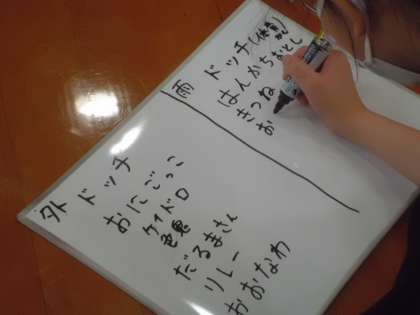 雨
ドッチ(体育かん)
はんかちおとし
きつね
お
外
ドッチ
おにごっこ
ケイドロ
色鬼
だるまさん
リレー
おおなわ